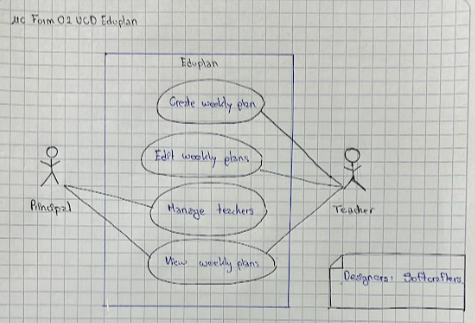 UC Form 02 UCD Eduplan
Eduplan
Create weekly plan
Edit weekly plans
Manage teachers
View weekly plans
Principal
Teacher
Designers: Softcrafters